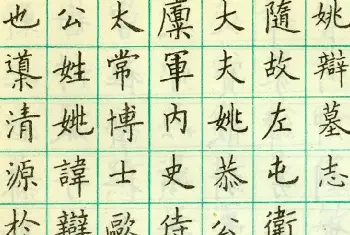 姚辯墓志
隨故左屯衛
大夫姚恭公
廩軍內史侍
太常博士歐
公姓姚諱辯
也導清源於